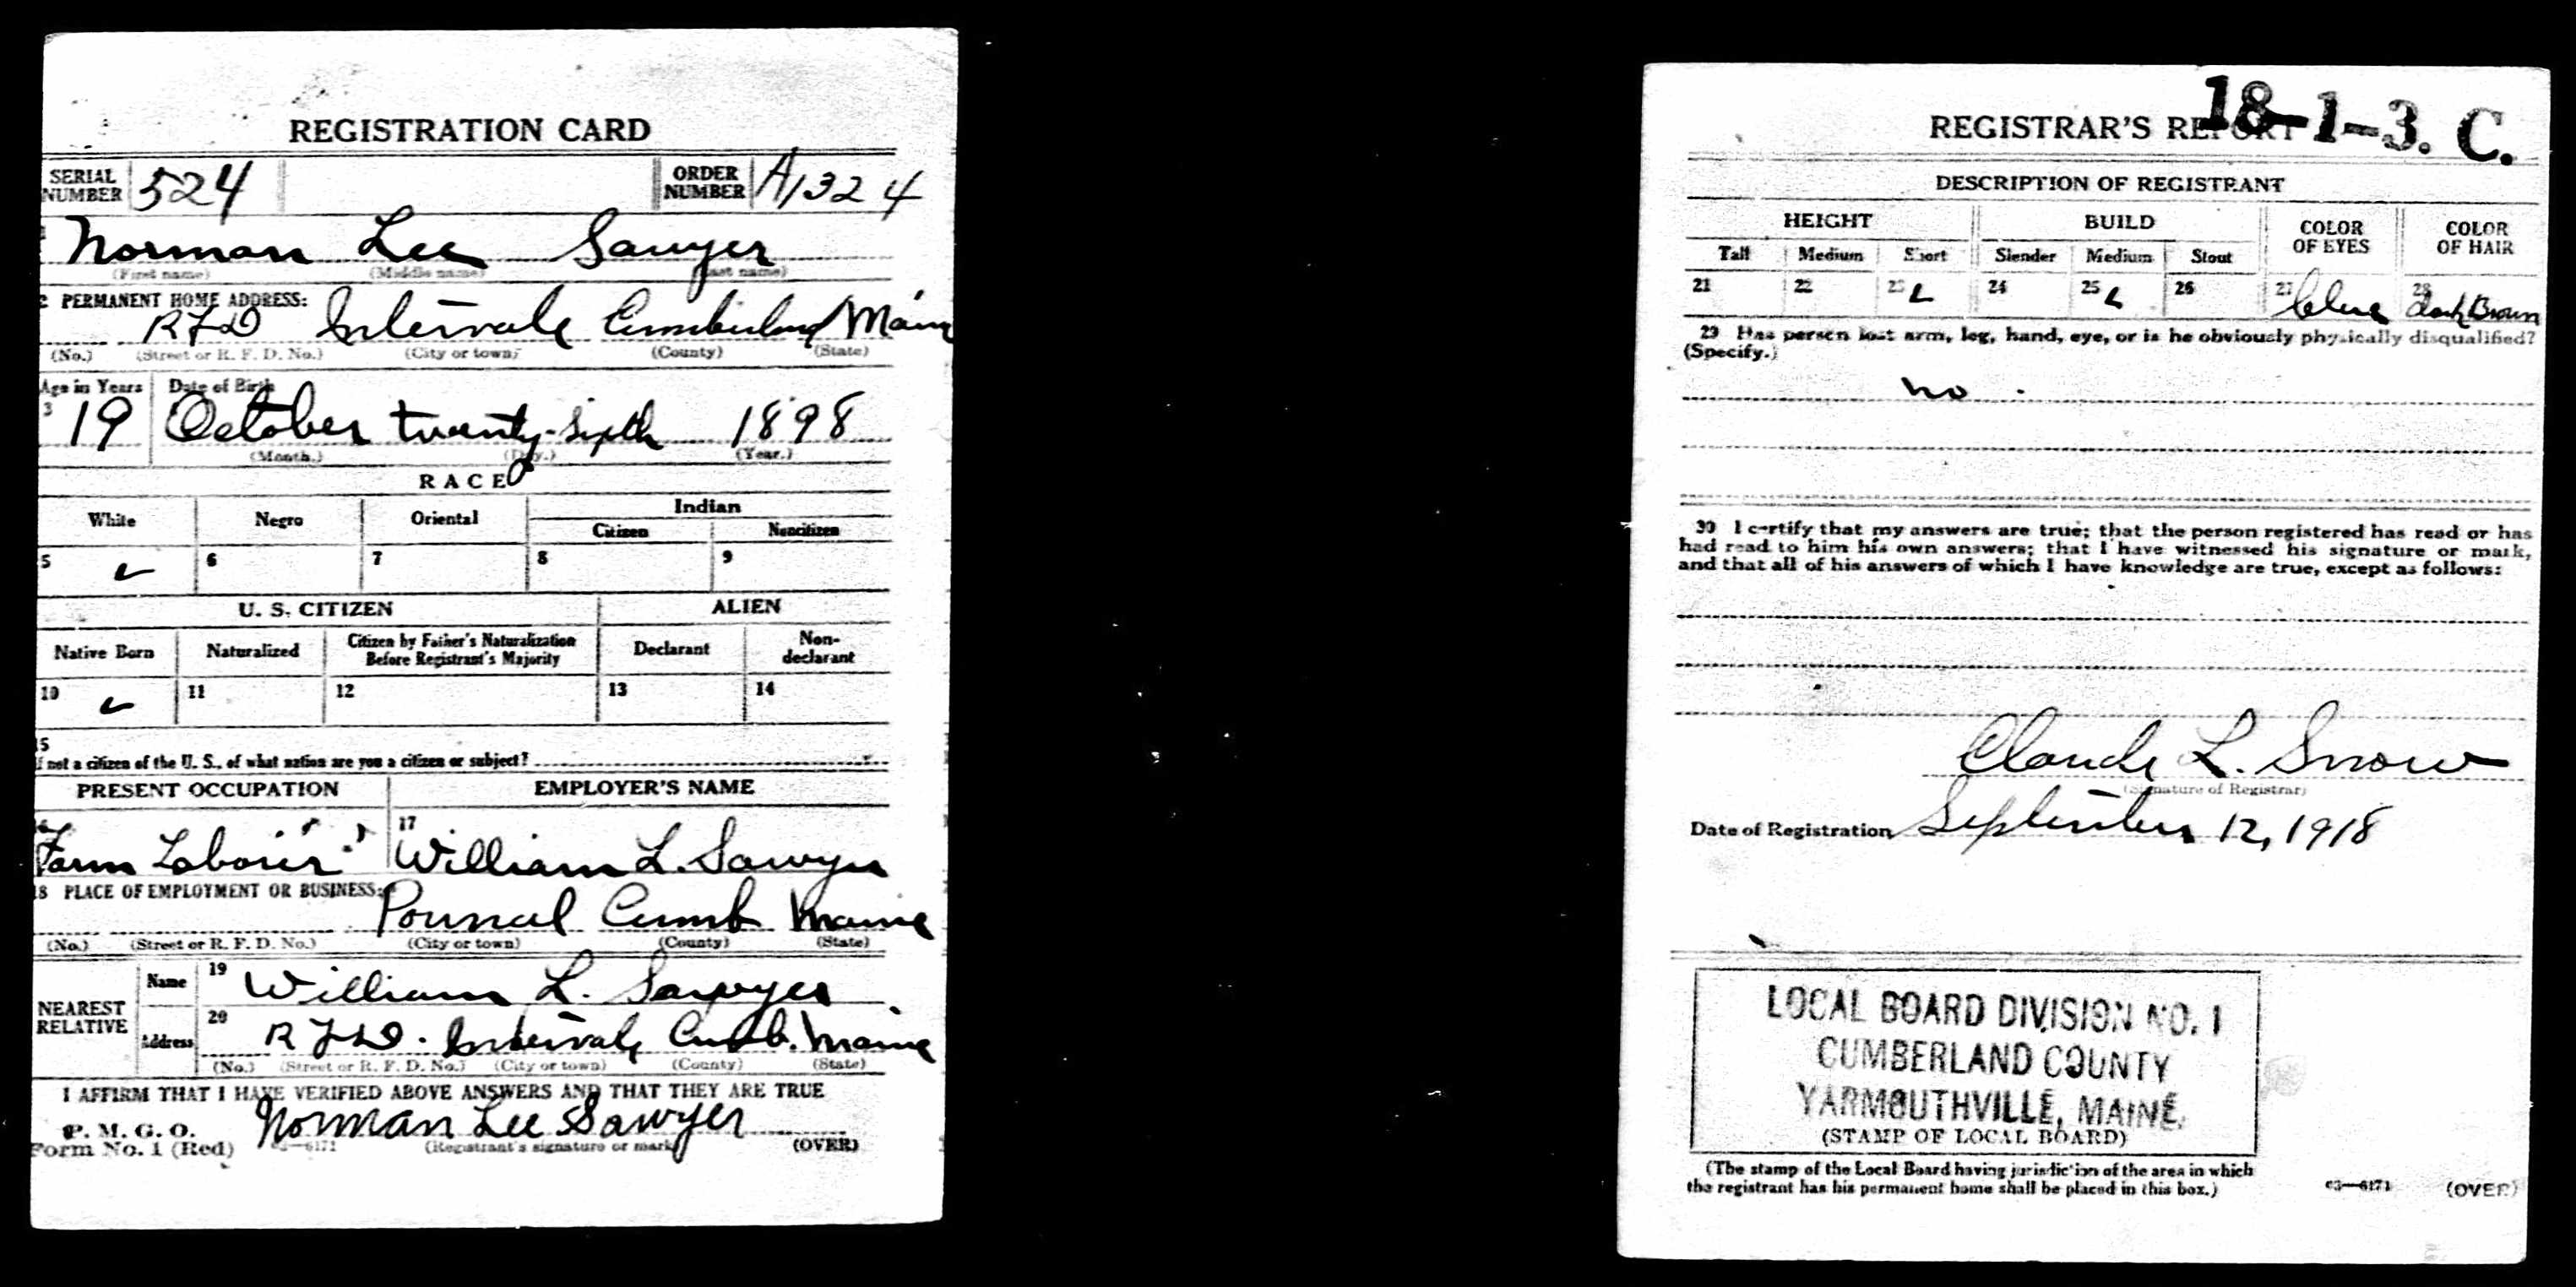 REGISTRATION CARD
SERIAL NUMBER 524 ORDER NUMBER A1324
Norman Lee Sawyer
(First name) (Middle name) (Last name)
2 PERMANENT HOME ADDRESS:
RFD Intervale Cumberland Maine
(No.) (Street or R. F. D. No.) (City or town) (County) (State)
Age in Years Date of Birth
3 19 October twenty-sixth 1898
(Month.) (Day.) (Year.)
RACE
White Negro Oriental Indian
Citizen Noncitizen
5 ✓ 6 7 8 9
U. S. CITIZEN ALIEN
Native Born Naturalized Citizen by Father's Naturalization Before Registrant's Majority Declarant Non-declarant
10 ✓ 11 12 13 14
15
If not a citizen of the U. S., of what nation are you a citizen or subject?
PRESENT OCCUPATION EMPLOYER'S NAME
Farm Laborer 17 William L. Sawyer
18 PLACE OF EMPLOYMENT OR BUSINESS:
Pownal Cumb Maine
(No.) (Street or R. F. D. No.) (City or town) (County) (State)
NEAREST RELATIVE
Name 19 William L. Sawyer
Address 20 RFD. Intervale Cumb. Maine
(No.) (Street or R. F. D. No.) (City or town) (County) (State)
I AFFIRM THAT I HAVE VERIFIED ABOVE ANSWERS AND THAT THEY ARE TRUE
P. M. G. O.
Form No. 1 (Red) 03—6171 Norman Lee Sawyer
(Registrant's signature or mark) (OVER)
18-1-3. C.
REGISTRAR'S REPORT
DESCRIPTION OF REGISTRANT
HEIGHT BUILD COLOR OF EYES COLOR OF HAIR
Tall Medium Short Slender Medium Stout
21 22 23 ✓ 24 25 ✓ 26 27 blue 28 dark Brown
29 Has person lost arm, leg, hand, eye, or is he obviously physically disqualified?
(Specify.)
no.
30 I certify that my answers are true; that the person registered has read or has
had read to him his own answers; that I have witnessed his signature or mark,
and that all of his answers of which I have knowledge are true, except as follows:
Claude L. Snow
(Signature of Registrar)
Date of Registration September 12, 1918
LOCAL BOARD DIVISION NO. 1
CUMBERLAND COUNTY
YARMOUTHVILLE, MAINE.
(STAMP OF LOCAL BOARD)
(The stamp of the Local Board having jurisdiction of the area in which
the registrant has his permanent home shall be placed in this box.)
03—6171 (OVER)